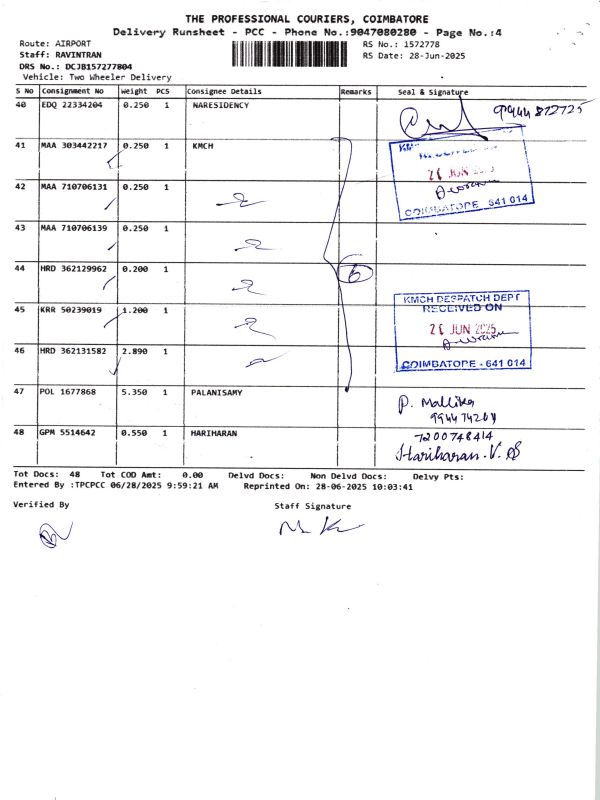 THE PROFESSIONAL COURIERS, COIMBATORE
Delivery Runsheet - PCC - Phone No.:9047080280 - Page No.:4
Route: AIRPORT RS No.: 1572778
Staff: RAVINTRAN RS Date: 28-Jun-2025
DRS No.: DCJB157277804
Vehicle: Two Wheeler Delivery
S No Consignment No Weight PCS Consignee Details Remarks Seal & Signature
40 EDQ 22334204 0.250 1 NARESIDENCY
41 MAA 303442217 0.250 1 KMCH
JUN
COIMBATORE - 641 014
42 MAA 710706131 0.250 1
43 MAA 710706139 0.250 1
44 HRD 362129962 0.200 1 6
KMCH DESPATCH DEPT
RECEIVED ON
45 KRR 50239019 1.200 1
JUN 2025
46 HRD 362131582 2.890 1
COIMBATORE - 641 014
47 POL 1677868 5.350 1 PALANISAMY P. Mallika
48 GPM 5514642 0.550 1 HARIHARAN 7200748414
Hariharan.V.
Tot Docs: 48 Tot COD Amt: 0.00 Delvd Docs: Non Delvd Docs: Delvy Pts:
Entered By :TPCPCC 06/28/2025 9:59:21 AM Reprinted On: 28-06-2025 10:03:41
Verified By Staff Signature